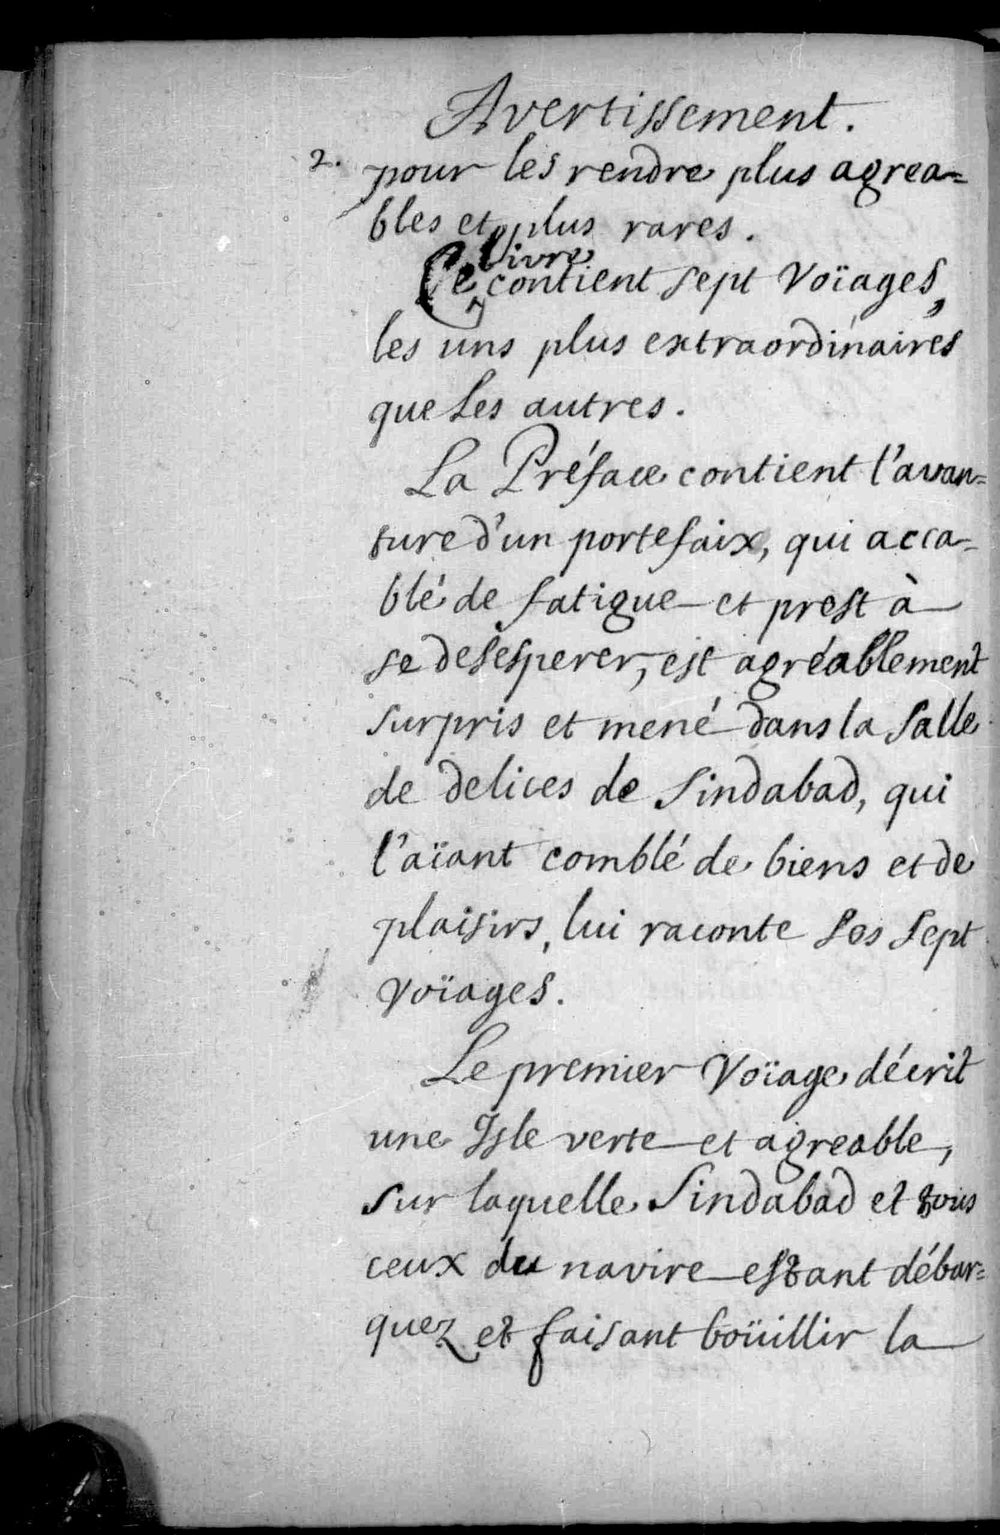 Avertissement.
2. pour les rendre plus agrea=
bles et plus rares.
livre
Ce contient sept Voïages,
les uns plus extraordinaires
que les autres.
La Préface contient l'avan=
ture d'un portefaix, qui acca-
blé de fatigue et prest à
se desesperer, est agréablement
surpris et mené dans la Salle
de delices de Sindabad, qui
l'aïant comblé de biens et de
plaisirs, lui raconte ses sept
Voïages.
Le premier Voïage décrit
une Isle verte et agreable,
sur laquelle Sindabad et tous
ceux du navire estant débar=
quez et faisant boüillir la